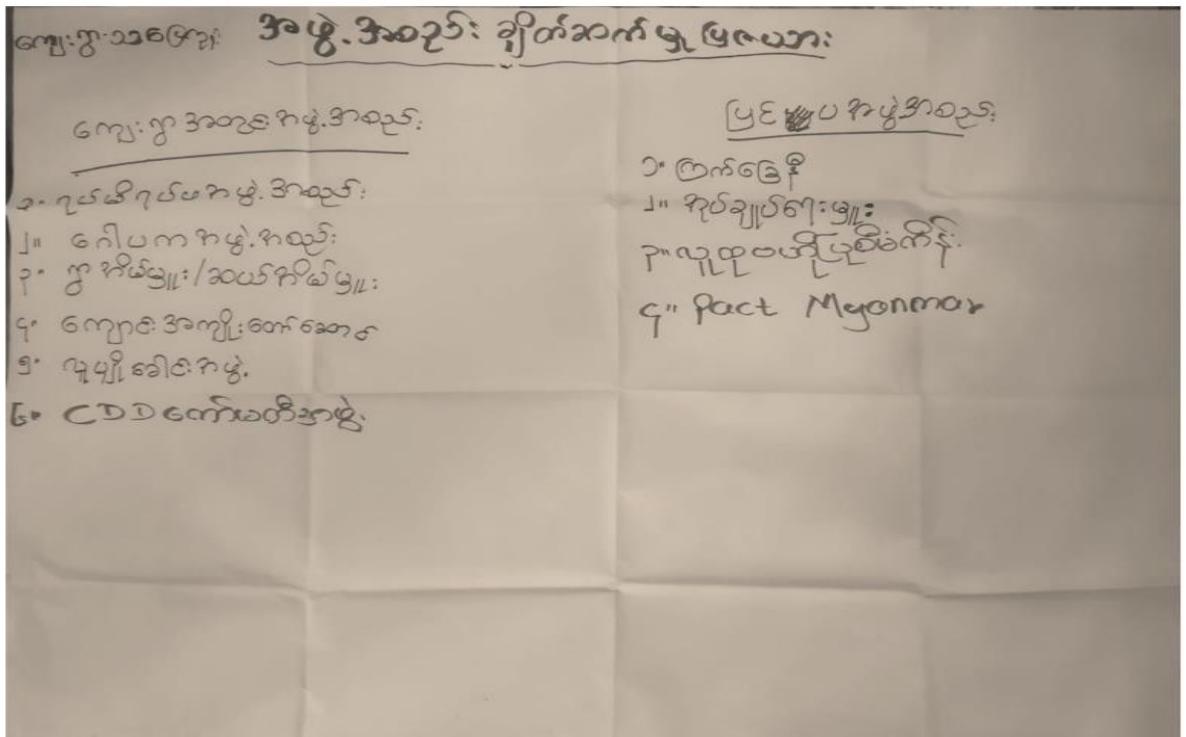 အဖွဲ့အစည်း ချိတ်ဆက်မှု ပြဇယား
ကျေးရွာအတွင်း အဖွဲ့အစည်း
၁။ ရပ်မိရပ်ဖအဖွဲ့အစည်း
၂။ ဂေါပကအဖွဲ့အစည်း
၃။ ရွာအိမ်မှူး/ဆယ်အိမ်မှူး
၄။ ကျောင်းအကျိုးတော်ဆောင်
၅။ လူပျိုခေါင်းအဖွဲ့
၆။ CDD ကော်မတီအဖွဲ့
ပြင်ပအဖွဲ့အစည်း
၁။ ကြက်ခြေနီ
၂။ အုပ်ချုပ်ရေးမှူး
၃။ လူထုဗဟိုပြုစီမံကိန်း
၄။ Pact Myanmar